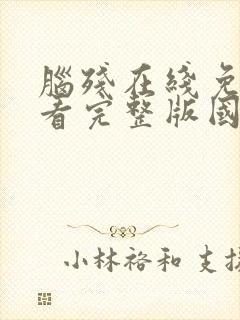 腦殘在綫免
看完整版國
小林裕和支援